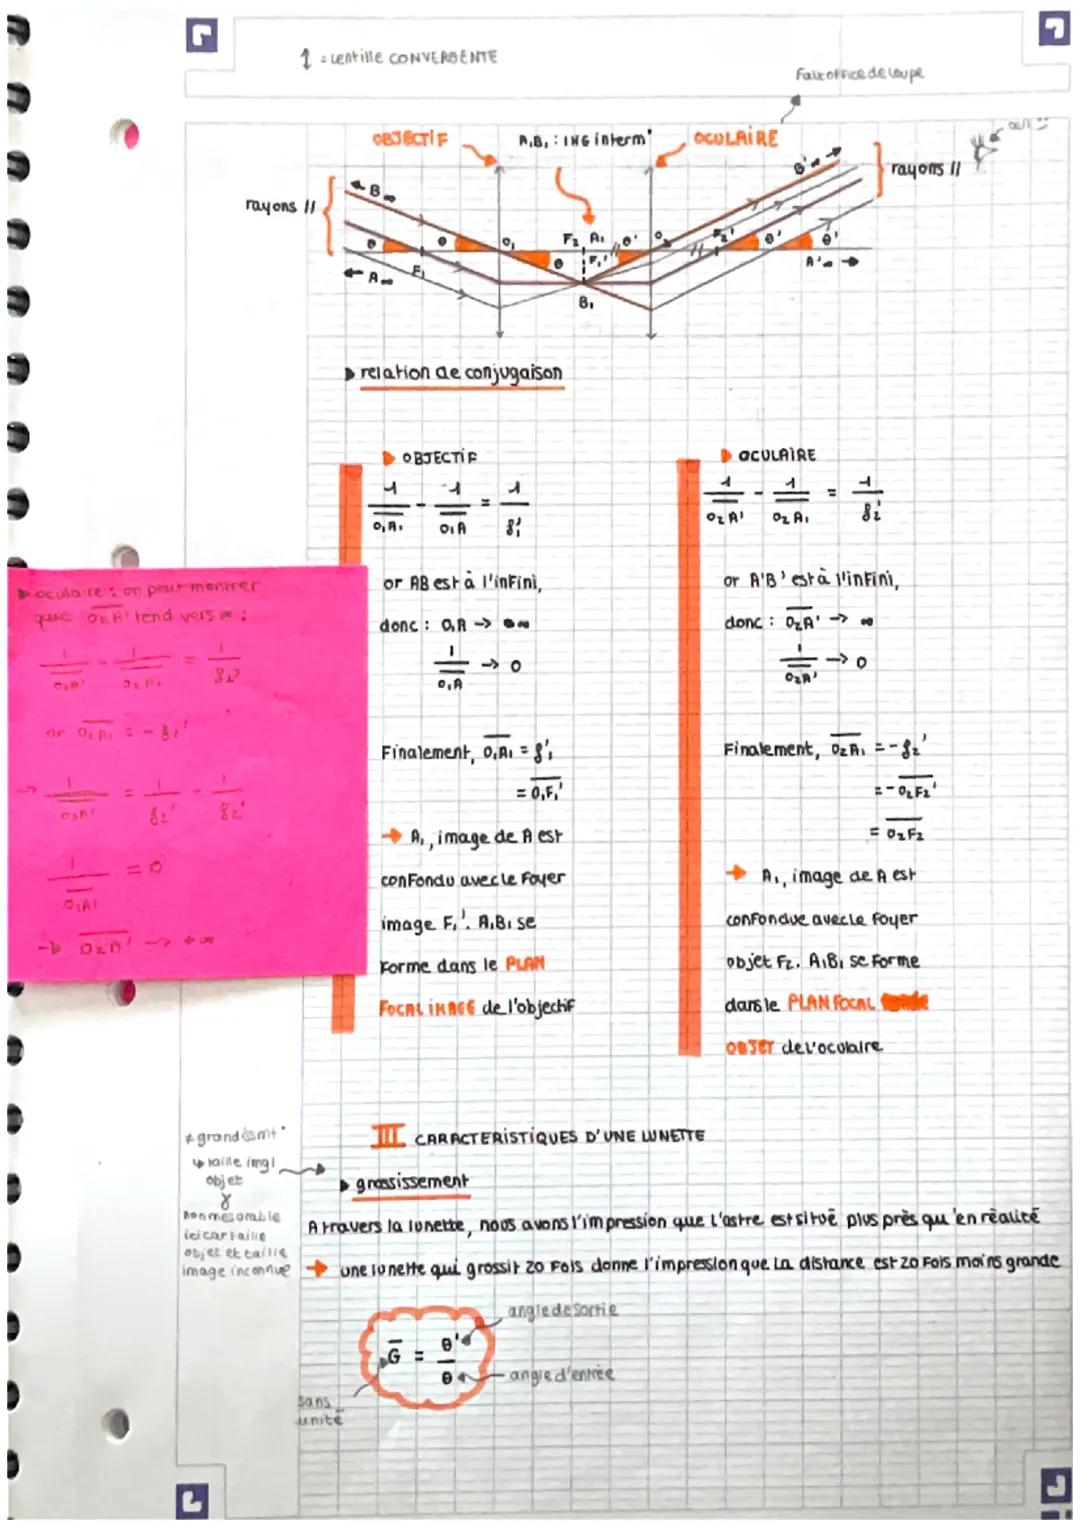 ↕ = lentille CONVERGENTE
Fait office de loupe
OBJECTIF
A₁B₁ : IMG interm^r
OCULAIRE
rayons //
B∞
B'∞
rayons //
θ θ O₁ θ F₂ A₁ θ' O₂ F₂' θ' θ'
A∞ F₁ F₁' A'∞
B₁
▸ relation de conjugaison
▸ OBJECTIF
1/O₁A₁ - 1/O₁A = 1/f₁'
or AB est à l'infini,
donc : O₁A → -∞
1/O₁A → 0
Finalement, O₁A₁ = f₁'
= O₁F₁'
→ A₁, image de A est
confondu avec le Foyer
image F₁'. A₁B₁ se
Forme dans le PLAN
FOCAL IMAGE de l'objectif
▸ OCULAIRE
1/O₂A' - 1/O₂A₁ = 1/f₂'
or A'B' est à l'infini,
donc : O₂A' → ∞
1/O₂A' → 0
Finalement, O₂A₁ = -f₂'
= -O₂F₂'
= O₂F₂
→ A₁, image de A est
confondue avec le Foyer
objet F₂. A₁B₁ se Forme
dans le PLAN FOCAL
OBJET de l'oculaire
▸ oculaire : on peut montrer
que O₂A' tend vers ∞ :
1/O₂A' - 1/O₂A₁ = 1/f₂'
or O₂A₁ = -f₂'
→ 1/O₂A' = 1/f₂' - 1/f₂'
1/O₂A' = 0
→ O₂A' → +∞
III CARACTERISTIQUES D'UNE LUNETTE
≠ grandissmt
↳ taille img/
objet
non mesurable
ici car taille
objet et taille
image inconnue
▸ grossissement
A travers la lunette, nous avons l'impression que l'astre est situé plus près qu'en réalité
→ une lunette qui grossit 20 Fois donne l'impression que la distance est 20 Fois moins grande
G = θ'/θ
angle de Sortie
angle d'entrée
sans
unité